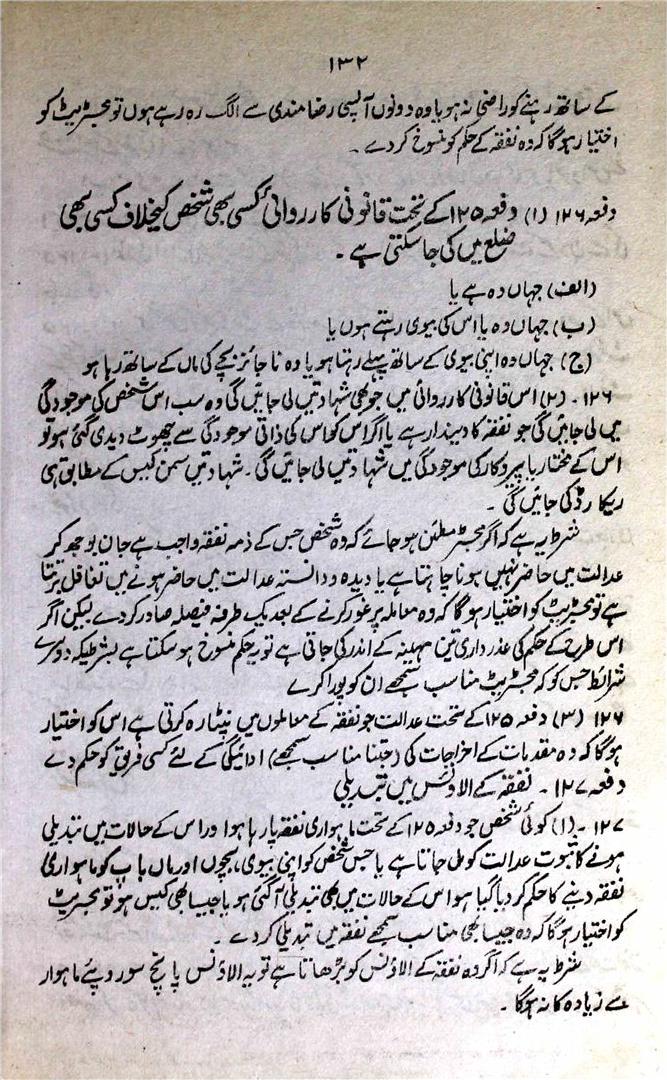 ۱۳۲
کے ساتھ رہنے کو راضی نہ ہو یا وہ دونوں آپسی رضامندی سے الگ رہ رہے ہوں تو مجسٹریٹ کو
اختیار ہوگا کہ وہ نفقہ کے حکم کو منسوخ کردے ۔
دفعہ ۱۲۶ (۱) دفعہ ۱۲۵ کے تحت قانونی کارروائی کسی بھی شخص کیخلاف کسی بھی
ضلع میں کی جاسکتی ہے ۔
(الف) جہاں وہ ہے یا
(ب) جہاں وہ یا اس کی بیوی رہتے ہوں یا
(ج) جہاں وہ اپنی بیوی کے ساتھ پہلے رہتا ہو یا وہ ناجائز بچے کی ماں کے ساتھ رہا ہو
۱۲۶ ۔ (۲) اس قانونی کارروائی میں جو بھی شہادتیں لی جائیں گی وہ سب اس شخص کی موجودگی
میں لی جائیں گی جو نفقہ کا دیندار ہے یا اگر اس کو اس کی ذاتی موجودگی سے چھوٹ دیدی گئی ہو تو
اس کے مختار یا پیروکار کی موجودگی میں شہادتیں لی جائیں گی ۔ شہادتیں سمن کیس کے مطابق ہی
ریکارڈ کی جائیں گی ۔
شرط یہ ہے کہ اگر مجسٹریٹ مطمئن ہو جائے کہ وہ شخص جس کے ذمہ نفقہ واجب ہے جان بوجھ کر
عدالت میں حاضر نہیں ہونا چاہتا ہے یا دیدہ ودانستہ عدالت میں حاضر ہونے میں تغافل برتتا
ہے تو مجسٹریٹ کو اختیار ہوگا کہ وہ معاملہ پر غور کرنے کے بعد یک طرفہ فیصلہ صادر کردے لیکن اگر
اس طرح کے حکم کی عذر داری تین مہینہ کے اندر کی جاتی ہے تو یہ حکم منسوخ ہو سکتا ہے بشرطیکہ دوسرے
شرائط جس کو کہ مجسٹریٹ مناسب سمجھے ان کو پورا کرے
۱۲۶ (۳) دفعہ ۱۲۵ کے تحت عدالت جو نفقہ کے معاملوں میں نپٹارہ کرتی ہے اس کو اختیار
ہوگا کہ وہ مقدمات کے اخراجات کی (جتنا مناسب سمجھے) ادائیگی کے لئے کسی فریق کو حکم دے
دفعہ ۱۲۷ ۔ نفقہ کے الاؤنس میں تبدیلی
۱۲۷ ۔ (۱) کوئی شخص جو دفعہ ۱۲۵ کے تحت ماہواری نفقہ پا رہا ہو اور اس کے حالات میں تبدیلی
ہونے کا ثبوت عدالت کو مل جاتا ہے یا جس شخص کو اپنی بیوی، بچوں اور ماں باپ کو ماہواری
نفقہ دینے کا حکم کردیا گیا ہو اس کے حالات میں بھی تبدیلی آگئی ہو یا جیسا بھی کیس ہو تو مجسٹریٹ
کو اختیار ہوگا کہ وہ جیسا بھی مناسب سمجھے نفقہ میں تبدیلی کردے ۔
شرط یہ ہے کہ اگر وہ نفقہ کے الاؤنس کو بڑھاتا ہے تو یہ الاؤنس پانچ سو روپئے ماہوار
سے زیادہ کا نہ ہوگا ۔